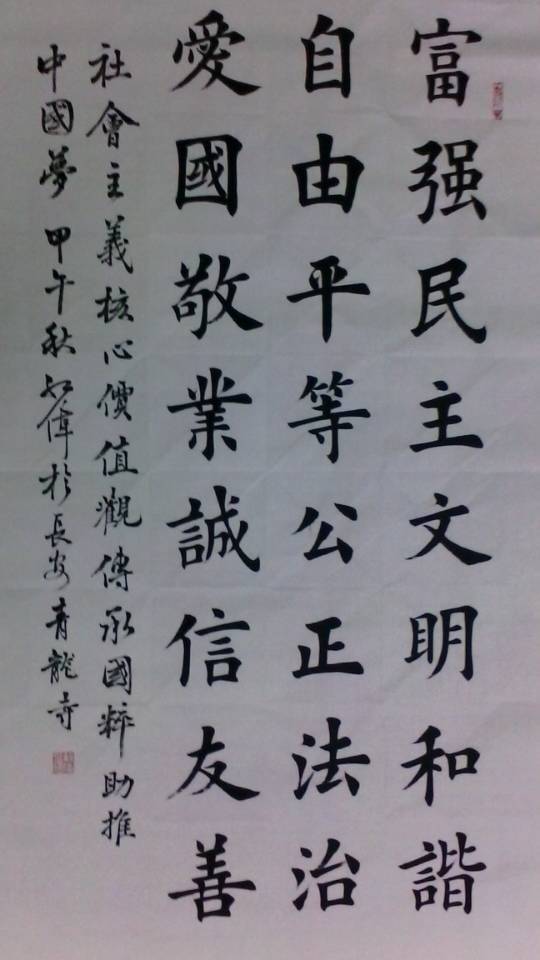 富强民主文明和諧
自由平等公正法治
愛國敬業誠信友善
社會主義核心價值觀傳承國粹助推
中國夢 甲午秋 偉於長安青龍寺